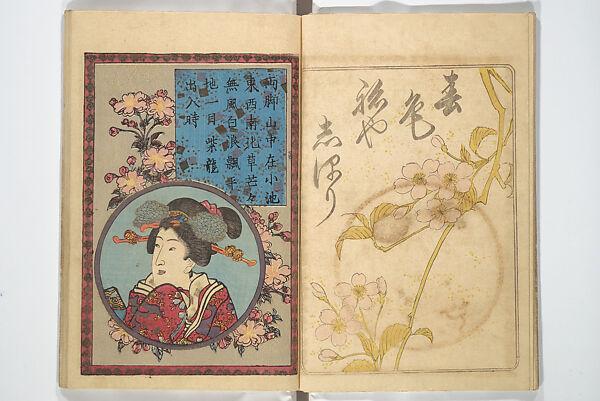 春
色
初や
志をり
両脚山中在小池
東西南北草茫々
無風白浪飄手
地一目紫龍
出入時